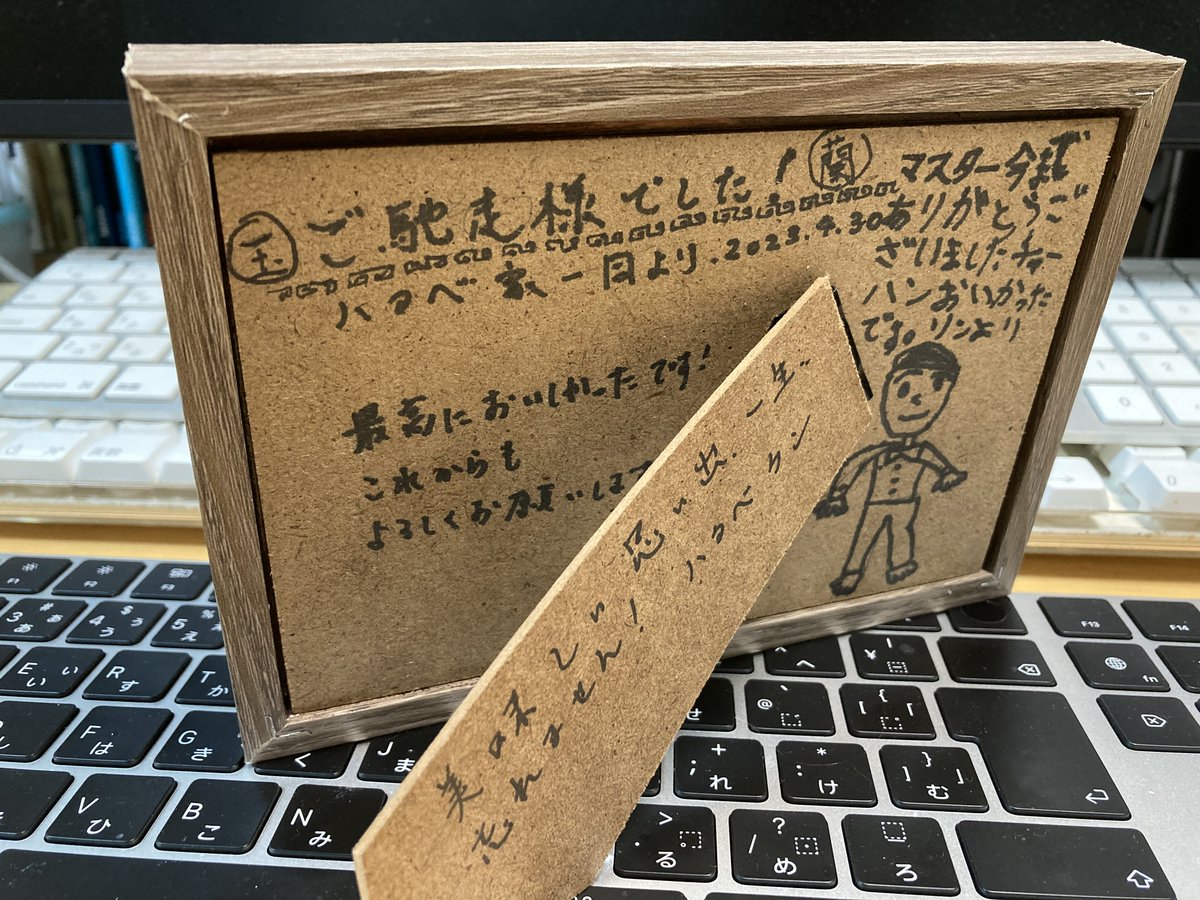 玉 ご馳走様でした! 蘭
ハタベ家一同より.2023.4.30
マスター今まで
ありがとうご
ざいましたチャー
ハンおいかった
です。リンより
最高においしかったです!
これからも
よろしくお願いします
美味しい思い出、一生
忘れません! ハタベケン